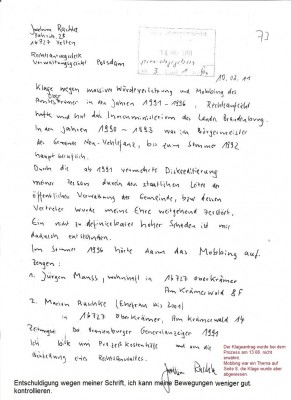 Joachim Raschke
Bahnstr. 28
16727 Velten
Rechtsantragstelle
Verwaltungsgericht Potsdam
73
10.02.11
Klage wegen massiver Würdeverletzung und Mobbing des
Amtes Krämer in den Jahren 1991 - 1996, Rechtsaufsicht
hatte und hat das Innenministerium des Landes Brandenburg.
In den Jahren 1990 - 1993 war ich Bürgermeister
der Gemeinde Neu-Vehlefanz, bis zum Sommer 1992
hauptberuflich.
Durch die ab 1991 vermehrte Diskreditierung
meiner Person durch den staatlichen Leiter der
öffentlichen Verwaltung der Gemeinde, bzw dessen
Vertreter wurde meine Ehre weitgehend zerstört.
Ein nicht zu definierbarer hoher Schaden ist mir
dadurch entstanden.
Im Sommer 1996 hörte dann das Mobbing auf.
Zeugen:
1. Jürgen Manss, wohnhaft in 16727 Oberkrämer
Am Krämerswald 8F
2. Marion Raschke (Ehefrau bis 2001)
in 16727 Oberkrämer, Am Krämerswald 14
Zeitungen: Oranienburger Generalanzeiger 1991
Ich bitte um Prozeßkostenhilfe und um die
eines Rechtsanwaltes.
Joachim Raschke
Der Klageantrag wurde bei dem
Prozess am 13.88. nicht
erwähnt.
Mobbing war ein Thema auf
Seite 6, die Klage wurde aber
abgewiesen.
Entschuldigung wegen meiner Schrift, ich kann meine Bewegungen weniger gut.
kontrollieren.